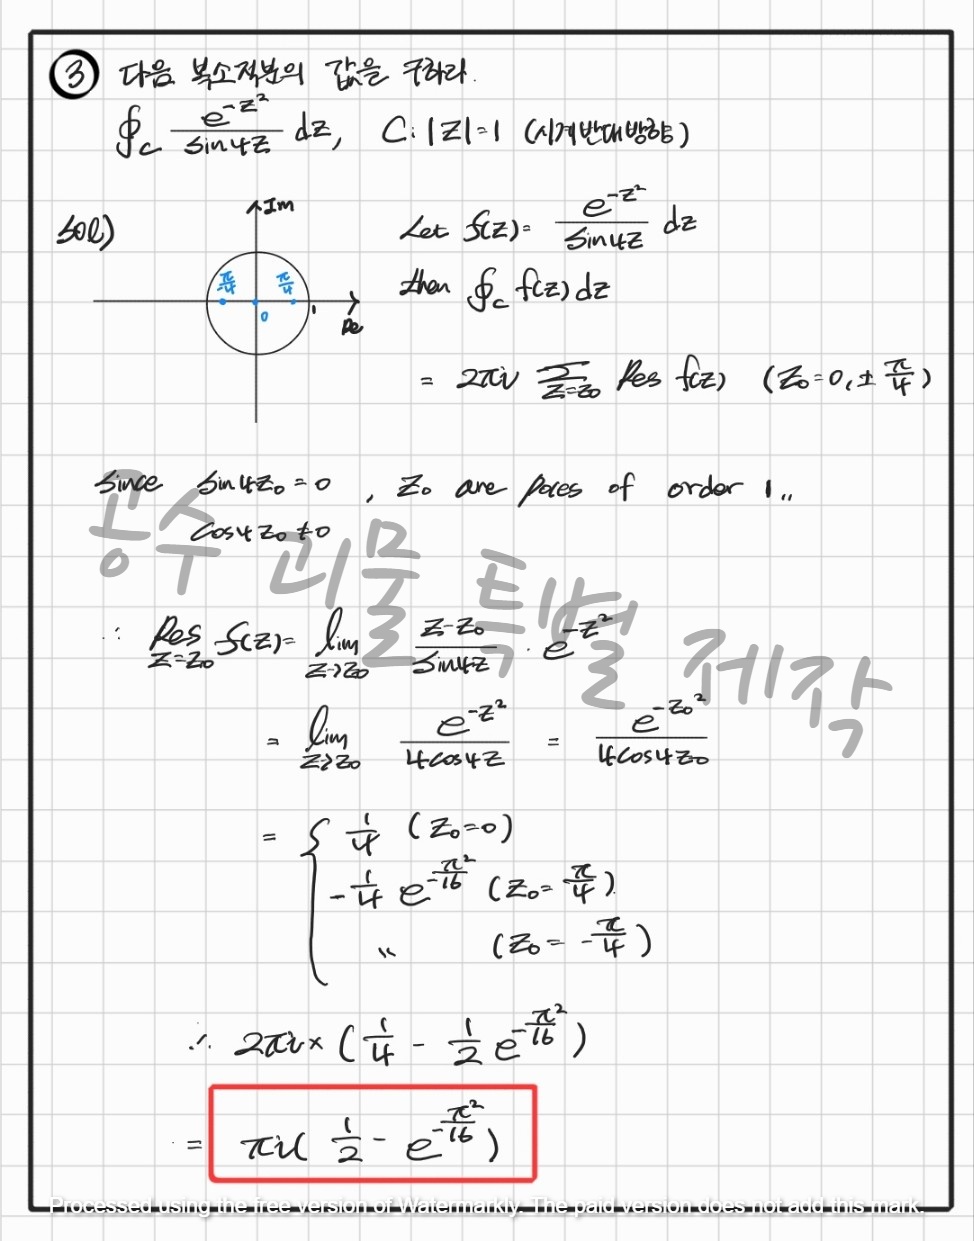 ③ 다음 복소적분의 값을 구하라.
∮_C e^{-z²}/sin4z dz, C: |z|=1 (시계반대방향)
sol)
Im
-π/4
π/4
0
1
Re
Let f(z)= e^{-z²}/sin4z dz
then ∮_C f(z)dz
= 2πi Σ_{z=z₀} Res f(z) (z₀=0, ±π/4)
since sin4z₀=0 , z₀ are poles of order 1..
cos4z₀≠0
공수 괴물 특별 제작
∴ Res_{z=z₀} f(z)= lim_{z→z₀} (z-z₀)/sin4z · e^{-z²}
= lim_{z→z₀} e^{-z²}/4cos4z = e^{-z₀²}/4cos4z₀
= { 1/4 (z₀=0)
-1/4 e^{-π²/16} (z₀=π/4)
〃 (z₀=-π/4)
∴ 2πi×(1/4 - 1/2 e^{-π²/16})
= πi(1/2 - e^{-π²/16})
Processed using the free version of Watermarkly. The paid version does not add this mark.